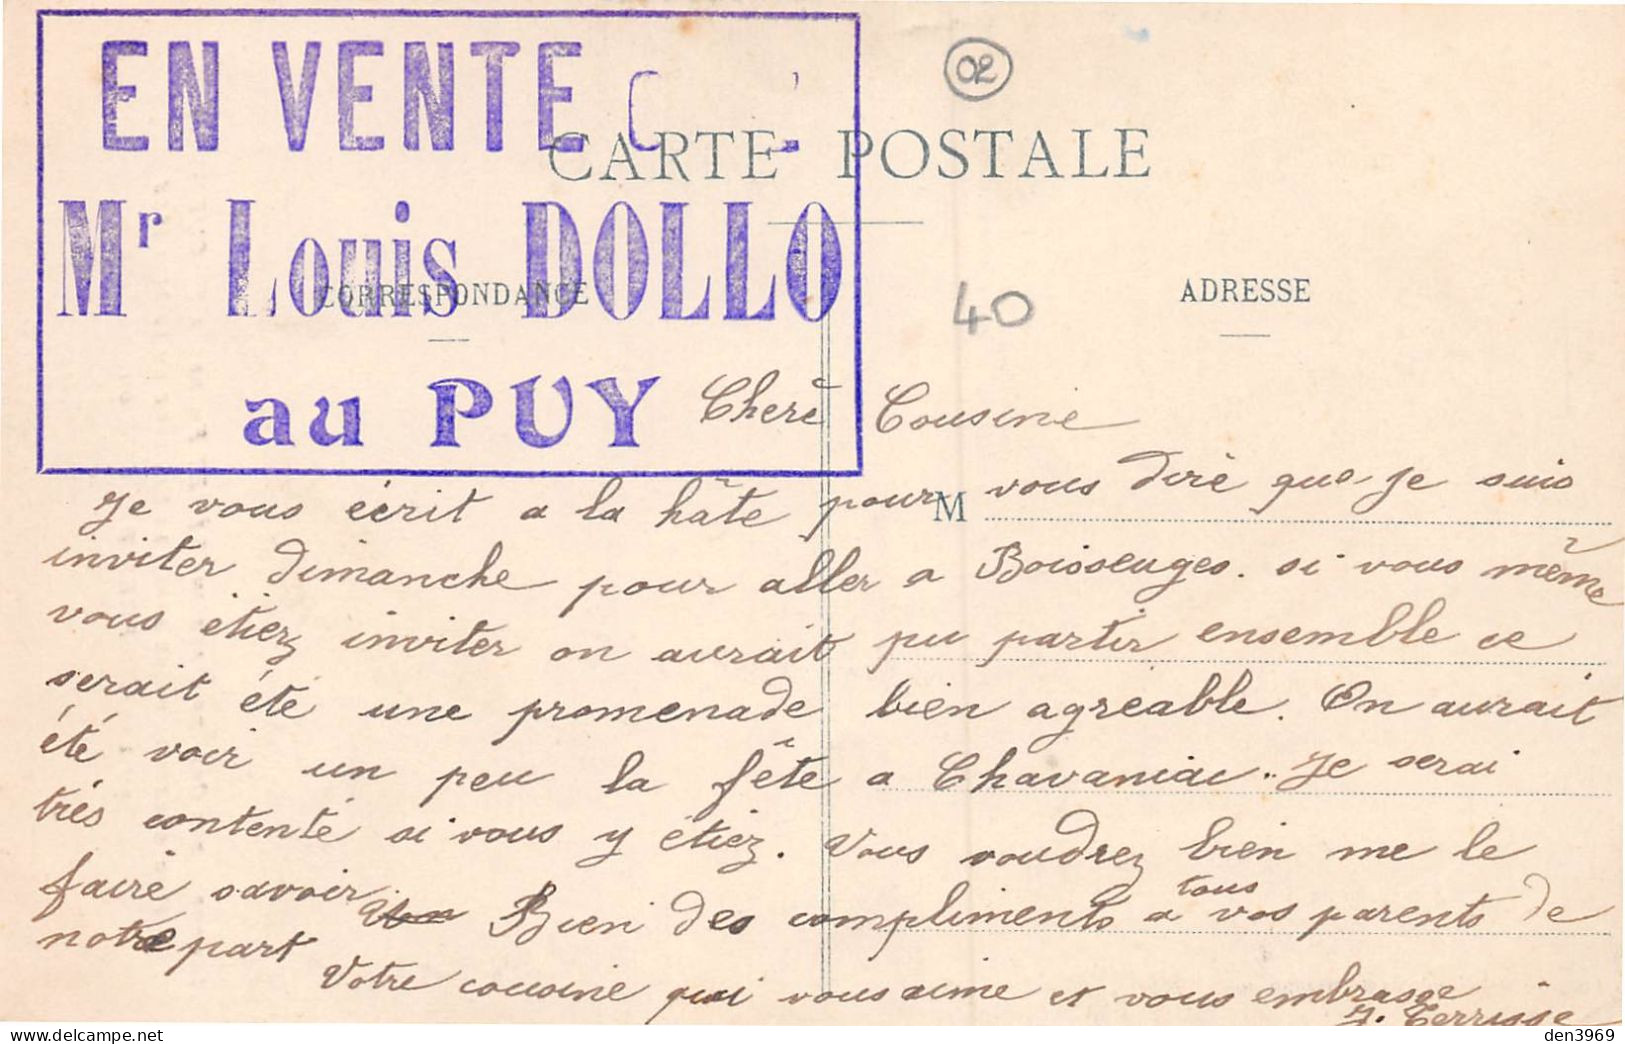 EN VENTE C
02
CARTE POSTALE
Mr Louis DOLLO
CORRESPONDANCE
ADRESSE
40
au PUY
Cherè Cousine
M
Je vous écrit a la hâte pour vous dirè que je suis
inviter dimanche pour aller a Boisseuges. si vous même
vous étiez inviter on aurait pu partir ensemble ce
serait été une promenade bien agréable. On aurait
été voir un peu la fête a Chavaniac. Je serai
trés contenté si vous y étiez. Vous voudrez bien me le
fairé savoir Bien des compliments a tous vos parents de
notre part
Votre cousine qui vous aime et vous embrasse
J. Terrisse
den3969